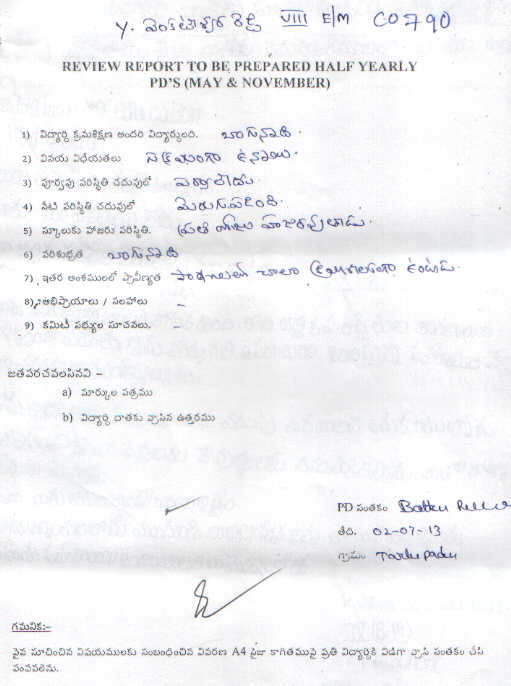 Y. వెంకటేశ్వర రెడ్డి VIII E/M C0790
REVIEW REPORT TO BE PREPARED HALF YEARLY
PD'S (MAY & NOVEMBER)
1) విద్యార్థి క్రమశిక్షణ అందరి విద్యార్థులది. బాగున్నాది.
2) వినయ విధేయతలు ఉన్నాయి.
3) పూర్వపు పరిస్థితి చదువులో పర్వాలేదు.
4) నేటి పరిస్థితి చదువులో మెరుగుపడింది.
5) స్కూలుకు హాజరు పరిస్థితి. ప్రతి రోజు హాజరవుతాడు.
6) పరిశుభ్రత బాగున్నాది
7) ఇతర అంశములలో ప్రావీణ్యత చాలా ఉంటాడు.
8) అభిప్రాయాలు / సలహాలు –
9) కమిటీ సభ్యుల సూచనలు. –
జతపరచవలసినవి –
a) మార్కుల పత్రము
b) విద్యార్థి దాతకు వ్రాసిన ఉత్తరము
PD సంతకం
తేది. 02-07-13
గ్రామం
గమనిక:-
పైన సూచించిన విషయములకు సంబంధించిన వివరణ A4 సైజు కాగితముపై ప్రతి విద్యార్థికి విడిగా వ్రాసి సంతకం చేసి
పంపవలెను.